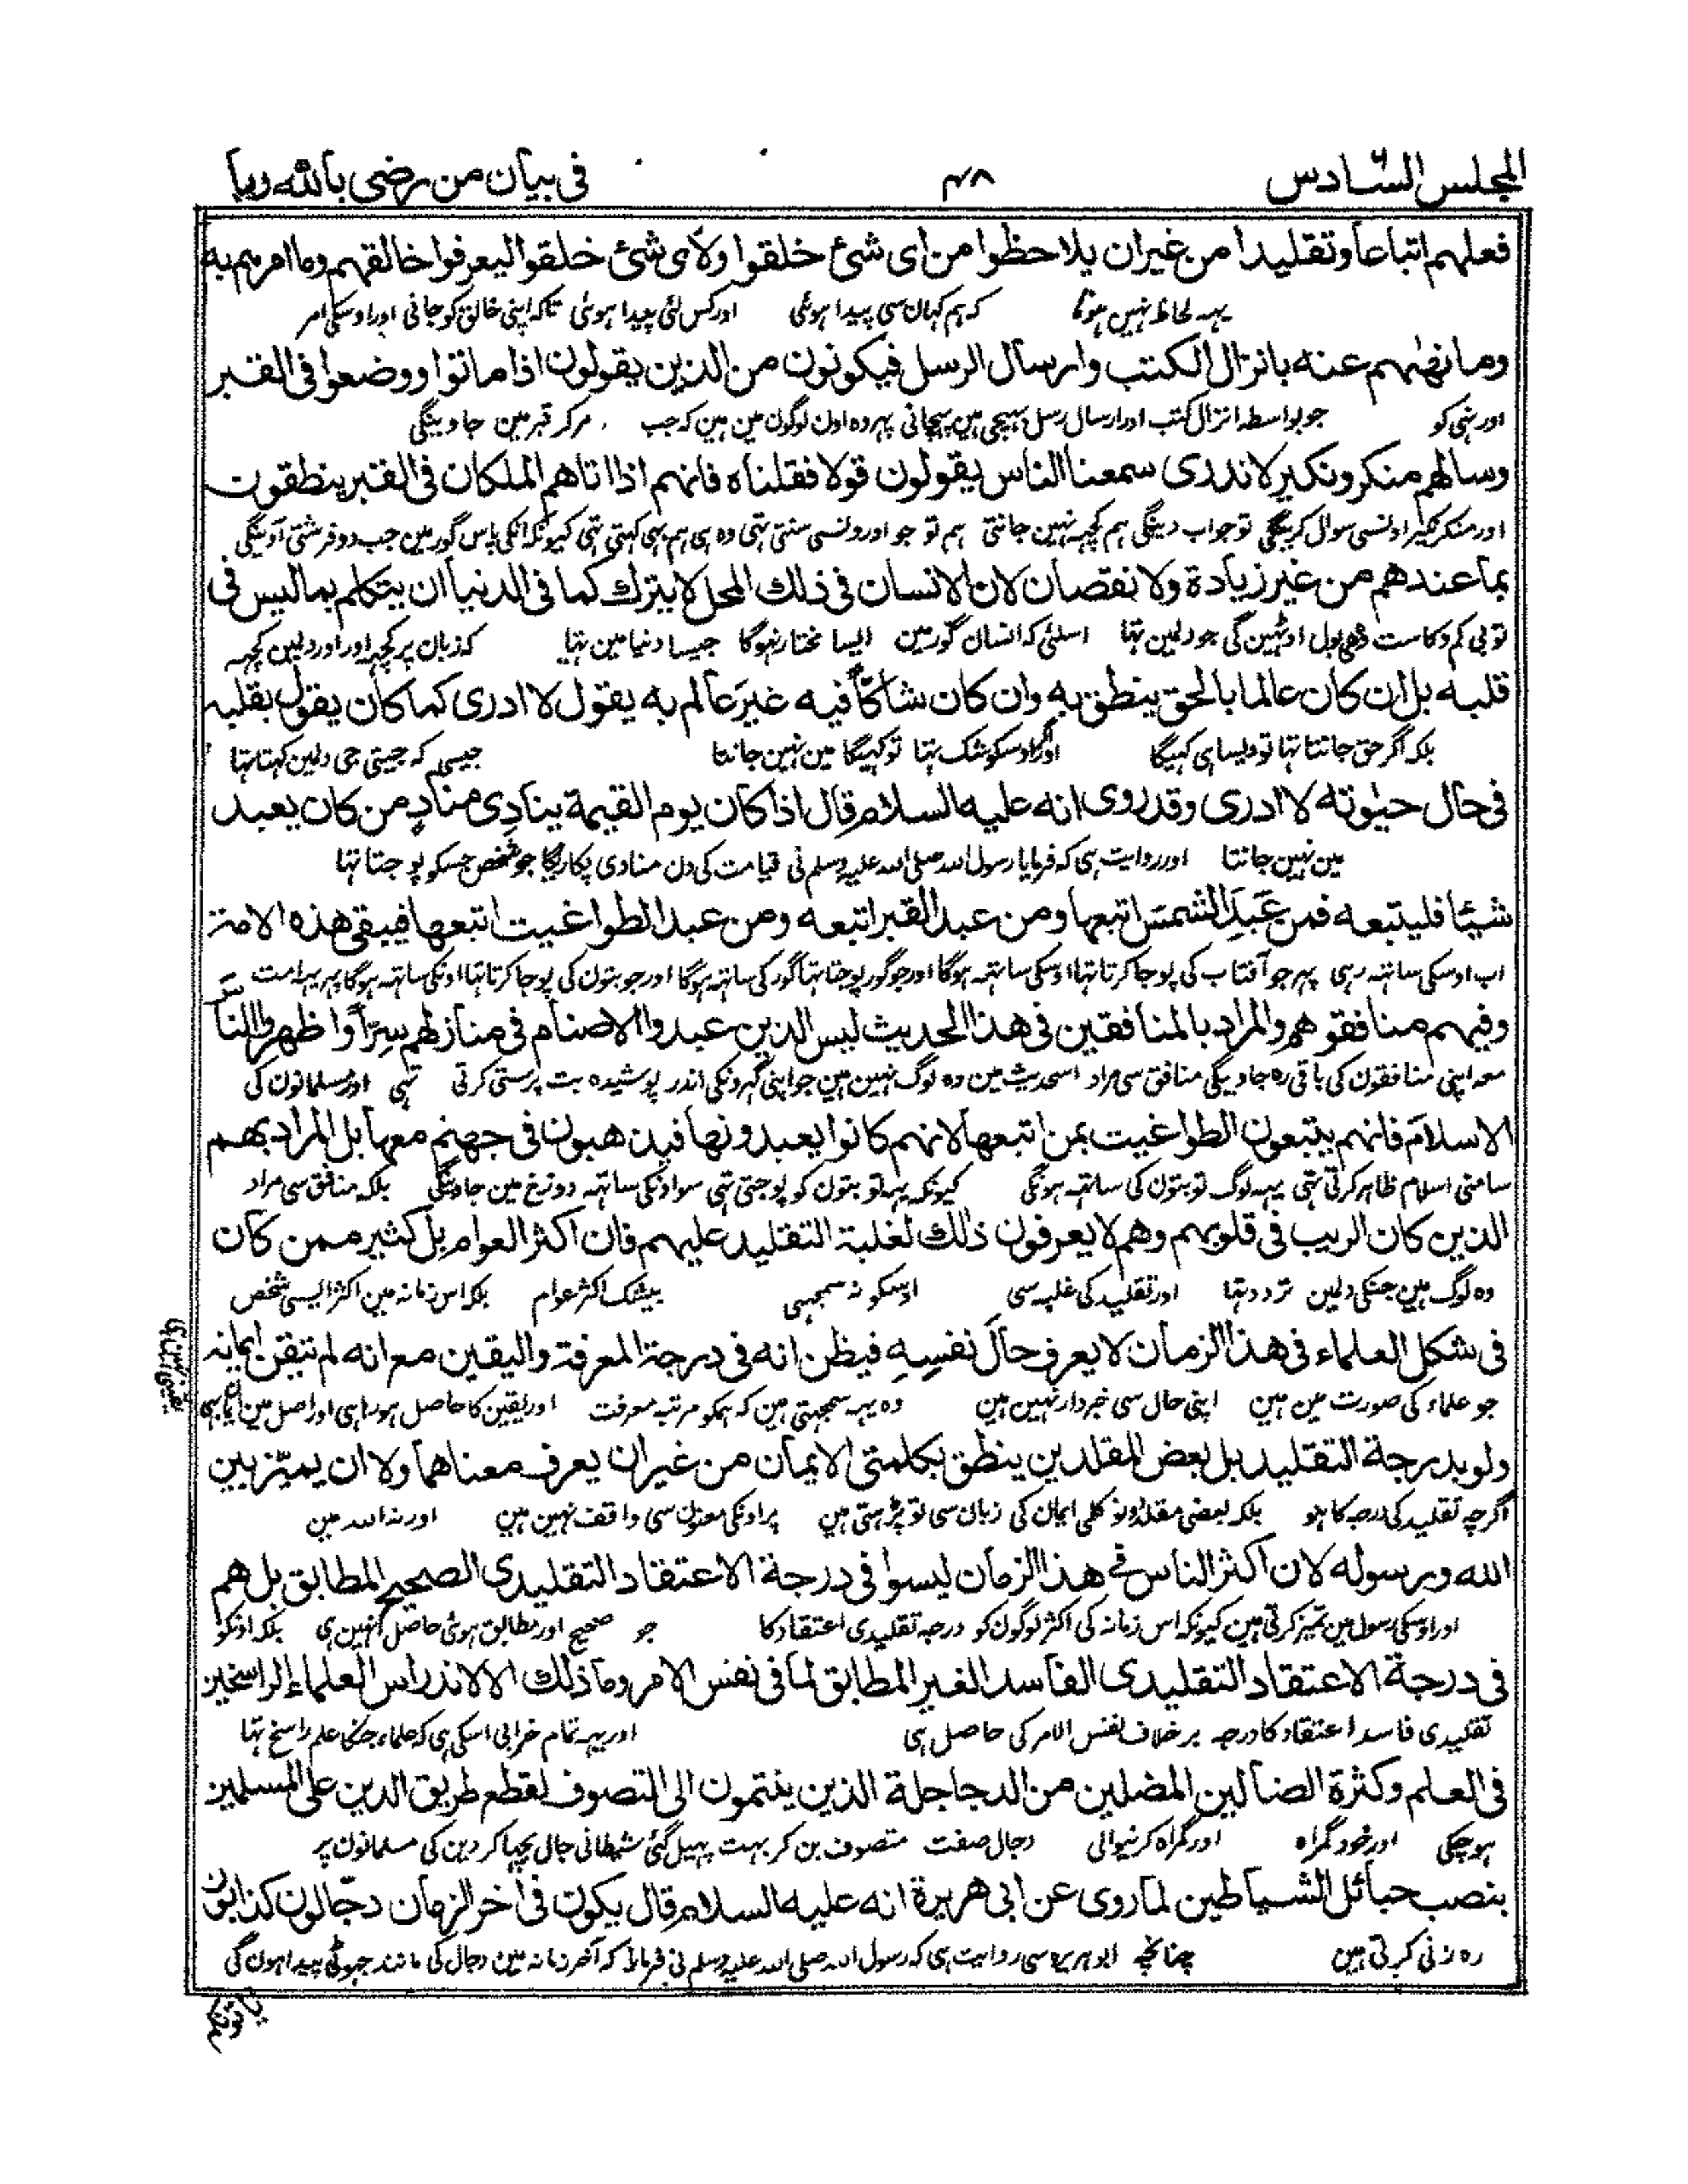 المجلس السّادس ٤٨ فى بيان من رضى بالله ربا
فعلهم اتباعا وتقليدا من غيران يلاحظوا من اى شئ خلقوا ولاى شئ خلقوا ليعرفوا خالقهم وما امرهم به
يہہ لحاظ نہین ہوتا کہ ہم کہان سی پیدا ہوئی اور کس لئی پیدا ہوئی تاکہ اپنی خالق کو جانی اور اوسکی امر
وما نهٰهم عنه بانزال الكتب وارسال الرسل فيكونون من الذين يقولون اذا ماتوا ووضعوا فى القبر
اور نہی کو جو بواسطہ انزال کتب اور ارسال رسل بہیجی ہین پہچانی پہر وہ اون لوگون مین ہین کہ جب مرکر قبر مین جاوینگی
وسالهم منكر ونكير لا ندرى سمعنا الناس يقولون قولا فقلناه فانهم اذا اتاهم الملكان فى القبر ينطقون
اور منکر نکیر اونسی سوال کرینگی تو جواب دینگی ہم کچہہ نہین جانتی ہم تو جو اورونسی سنتی تہی وہ ہی ہم بہی کہتی تہی کیونکہ انکی پاس گور مین جب دو فرشتی آوینگی
بما عندهم من غير زيادة ولا نقصان لان الانسان فى ذلك المحل لا يترك كما فى الدنيا ان يتكلم بما ليس فى
تو بی کم وکاست وہی بول اوٹہین گی جو دلمین تہا اسلئی کہ انسان گور مین ایسا مختار نہوگا جیسا دنیا مین تہا کہ زبان پر کچہہ اور اور دلمین کچہہ
قلبه بل ان كان عالما بالحق ينطق به وان كان شاكّا فيه غير عالم به يقول لا ادرى كما كان يقول بقلبه
بلکہ اگر حق جانتا تہا تو ویسا ہی کہیگا اور اگر اوسکو شک تہا تو کہیگا مین نہین جانتا جیسی کہ جیتی جی دلمین کہتا تہا
فى حال حيٰوته لا ادرى وقد روى انه عليه السلام قال اذا كان يوم القيمة ينادى منادٍ من كان يعبد
مین نہین جانتا اور روایت ہی کہ فرمایا رسول اللہ صلی اللہ علیہ وسلم نی قیامت کی دن منادی پکاریگا جو شخص جسکو پوجتا تہا
شيئا فليتبعه فمن عَبَدَ الشمسَ اتبعها ومن عبد القبر اتبعه ومن عبد الطواغيت اتبعها فيبقى هذه الامة
اب اوسکی ساتہہ رہی پہر جو آفتاب کی پوجا کرتا تہا اوسکی ساتہہ ہوگا اور جو گور پوجتا تہا گور کی ساتہہ ہوگا اور جو بتون کی پوجا کرتا تہا اونکی ساتہہ ہوگا پہر یہہ امت
وفيهم منافقوهم والمراد بالمنافقين فى هذا الحديث ليس الذين عبدوا الاصنام فى منازلهم سرّا واظهروا للنّاس
معہ اپنی منافقون کی باقی رہ جاویگی منافق سی مراد اسحدیث مین وہ لوگ نہین ہین جو اپنی گہرونکی اندر پوشیدہ بت پرستی کرتی تہی اور مسلمانون کی
الاسلام فانهم يتبعون الطواغيت بمن اتبعها لانهم كانوا يعبدونها فيذهبون فى جهنم معها بل المراد بهم
سامنی اسلام ظاہر کرتی تہی یہہ لوگ تو بتون کی ساتہہ ہونگی کیونکہ یہہ تو بتون کو پوجتی تہی سو اونکی ساتہہ دوزخ مین جاوینگی بلکہ منافق سی مراد
الذين كان الريب فى قلوبهم وهم لا يعرفون ذلك لغلبة التقليد عليهم فان اكثر العوام بل كثير ممن كان
وہ لوگ ہین جنکی دلمین تردد تہا اور تقلید کی غلبہ سی اوسکو نہ سمجہی بیشک اکثر عوام بلکہ اس زمانہ مین اکثر ایسی شخص
فى شكل العلماء فى هذا الزمان لا يعرف حالَ نفسِهِ فيظن انه فى درجة المعرفة واليقين مع انه لم يتقن ايمانه
جو علماء کی صورت مین ہین اپنی حال سی خبردار نہین ہین وہ یہہ سمجہتی ہین کہ ہمکو مرتبہ معرفت اور یقین کا حاصل ہو رہا ہی اور اصل مین
ولو بدرجة التقليد بل بعض المقلدين ينطق بكلمتى الايمان من غير ان يعرف معناهما ولا ان يميّز بين
اگرچہ تقلید کی درجہ کا ہو بلکہ بعضی مقلد دونو کلمی ایمان کی زبان سی تو پڑہتی ہین پر اونکی معنون سی واقف نہین ہین اور نہ اللہ مین
الله ورسوله لان اكثر الناس فى هذا الزمان ليسوا فى درجة الاعتقاد التقليدى الصحيح المطابق بل هم
اور اوسکی رسول مین تمیز کرتی ہین کیونکہ اس زمانہ کی اکثر لوگون کو درجہ تقلیدی اعتقاد کا جو صحیح اور مطابق ہوئی حاصل نہین ہی بلکہ اونکو
فى درجة الاعتقاد التقليدى الفاسد الغير المطابق لما فى نفس الامر وما ذلك الا لاندراس العلماء الراسخين
تقلیدی فاسد اعتقاد کا درجہ برخلاف نفس الامر کی حاصل ہی اور یہہ تمام خرابی اسکی ہی کہ علماء جنکا علم راسخ تہا
فى العلم وكثرة الضالين المضلين من الدجاجلة الذين ينتمون الى التصوف لقطع طريق الدين على المسلمين
ہو چکی اور خود گمراہ اور گمراہ کرنیوالی دجال صفت متصوف بن کر بہت پہیل گئی شیطانی جال بچہا کر دین کی مسلمانون پر
بنصب حبائل الشياطين لما روى عن ابى هريرة انه عليه السلام قال يكون فى اخر الزمان دجّالون كذابون
رہ زنی کرتی ہین چنانچہ ابو ہریرہ سی روایت ہی کہ رسول اللہ صلی اللہ علیہ وسلم نی فرمایا کہ آخر زمانہ مین دجال کی مانند جہوٹی پیدا ہون گی
ياتونكم